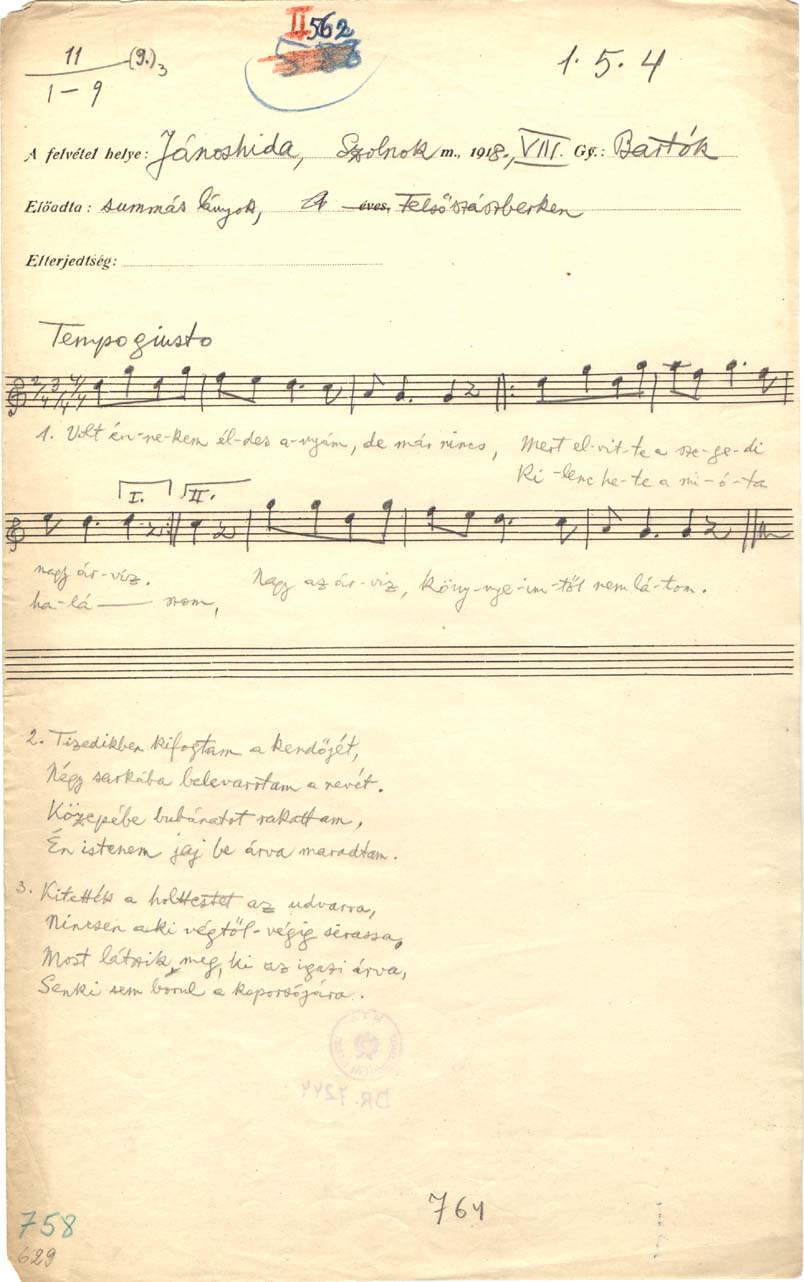 II 562
11 (9.)3
1-9
1. 5. 4
A felvétel helye: Jánoshida, Szolnok m., 1918., VIII. Gy.: Bartók
Előadta: summás lányok, éves, Felsőszászberken
Elterjedtség:
Tempo giusto
2/4 3/4 4/4
1. Volt én-ne-kem él-des a-nyám, de már nincs, Mert el-vit-te a sze-ge-di
Ki-lenc he-te a mi-ó-ta
I. II.
nagy ár-víz. Nagy az ár-viz, köny-nye-im-től nem lá-tom.
ha-lá- szom,
2. Tizedikben kifogtam a kendőjét,
Négy sarkába belevarrtam a nevét.
Közepébe bubánatot rakattam,
Én istenem jaj be árva maradtam.
3. Kitették a holttestet az udvarra,
Nincsen aki végtől-végig sirassa,
Most látszik meg, ki az igazi árva,
Senki sem borul a koporsójára.
DR. 7244
764
758
629